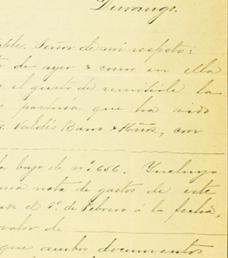 Durango.
Señor de mi respeto:
de ayer & como en ella
el gusto de remitirle la
que ha sido
Valdés Hnos, con
bajo el nº 656. Incluyo
una nota de gastos de este
el 1º de Febrero á la fecha,
valor de
que ambos documentos